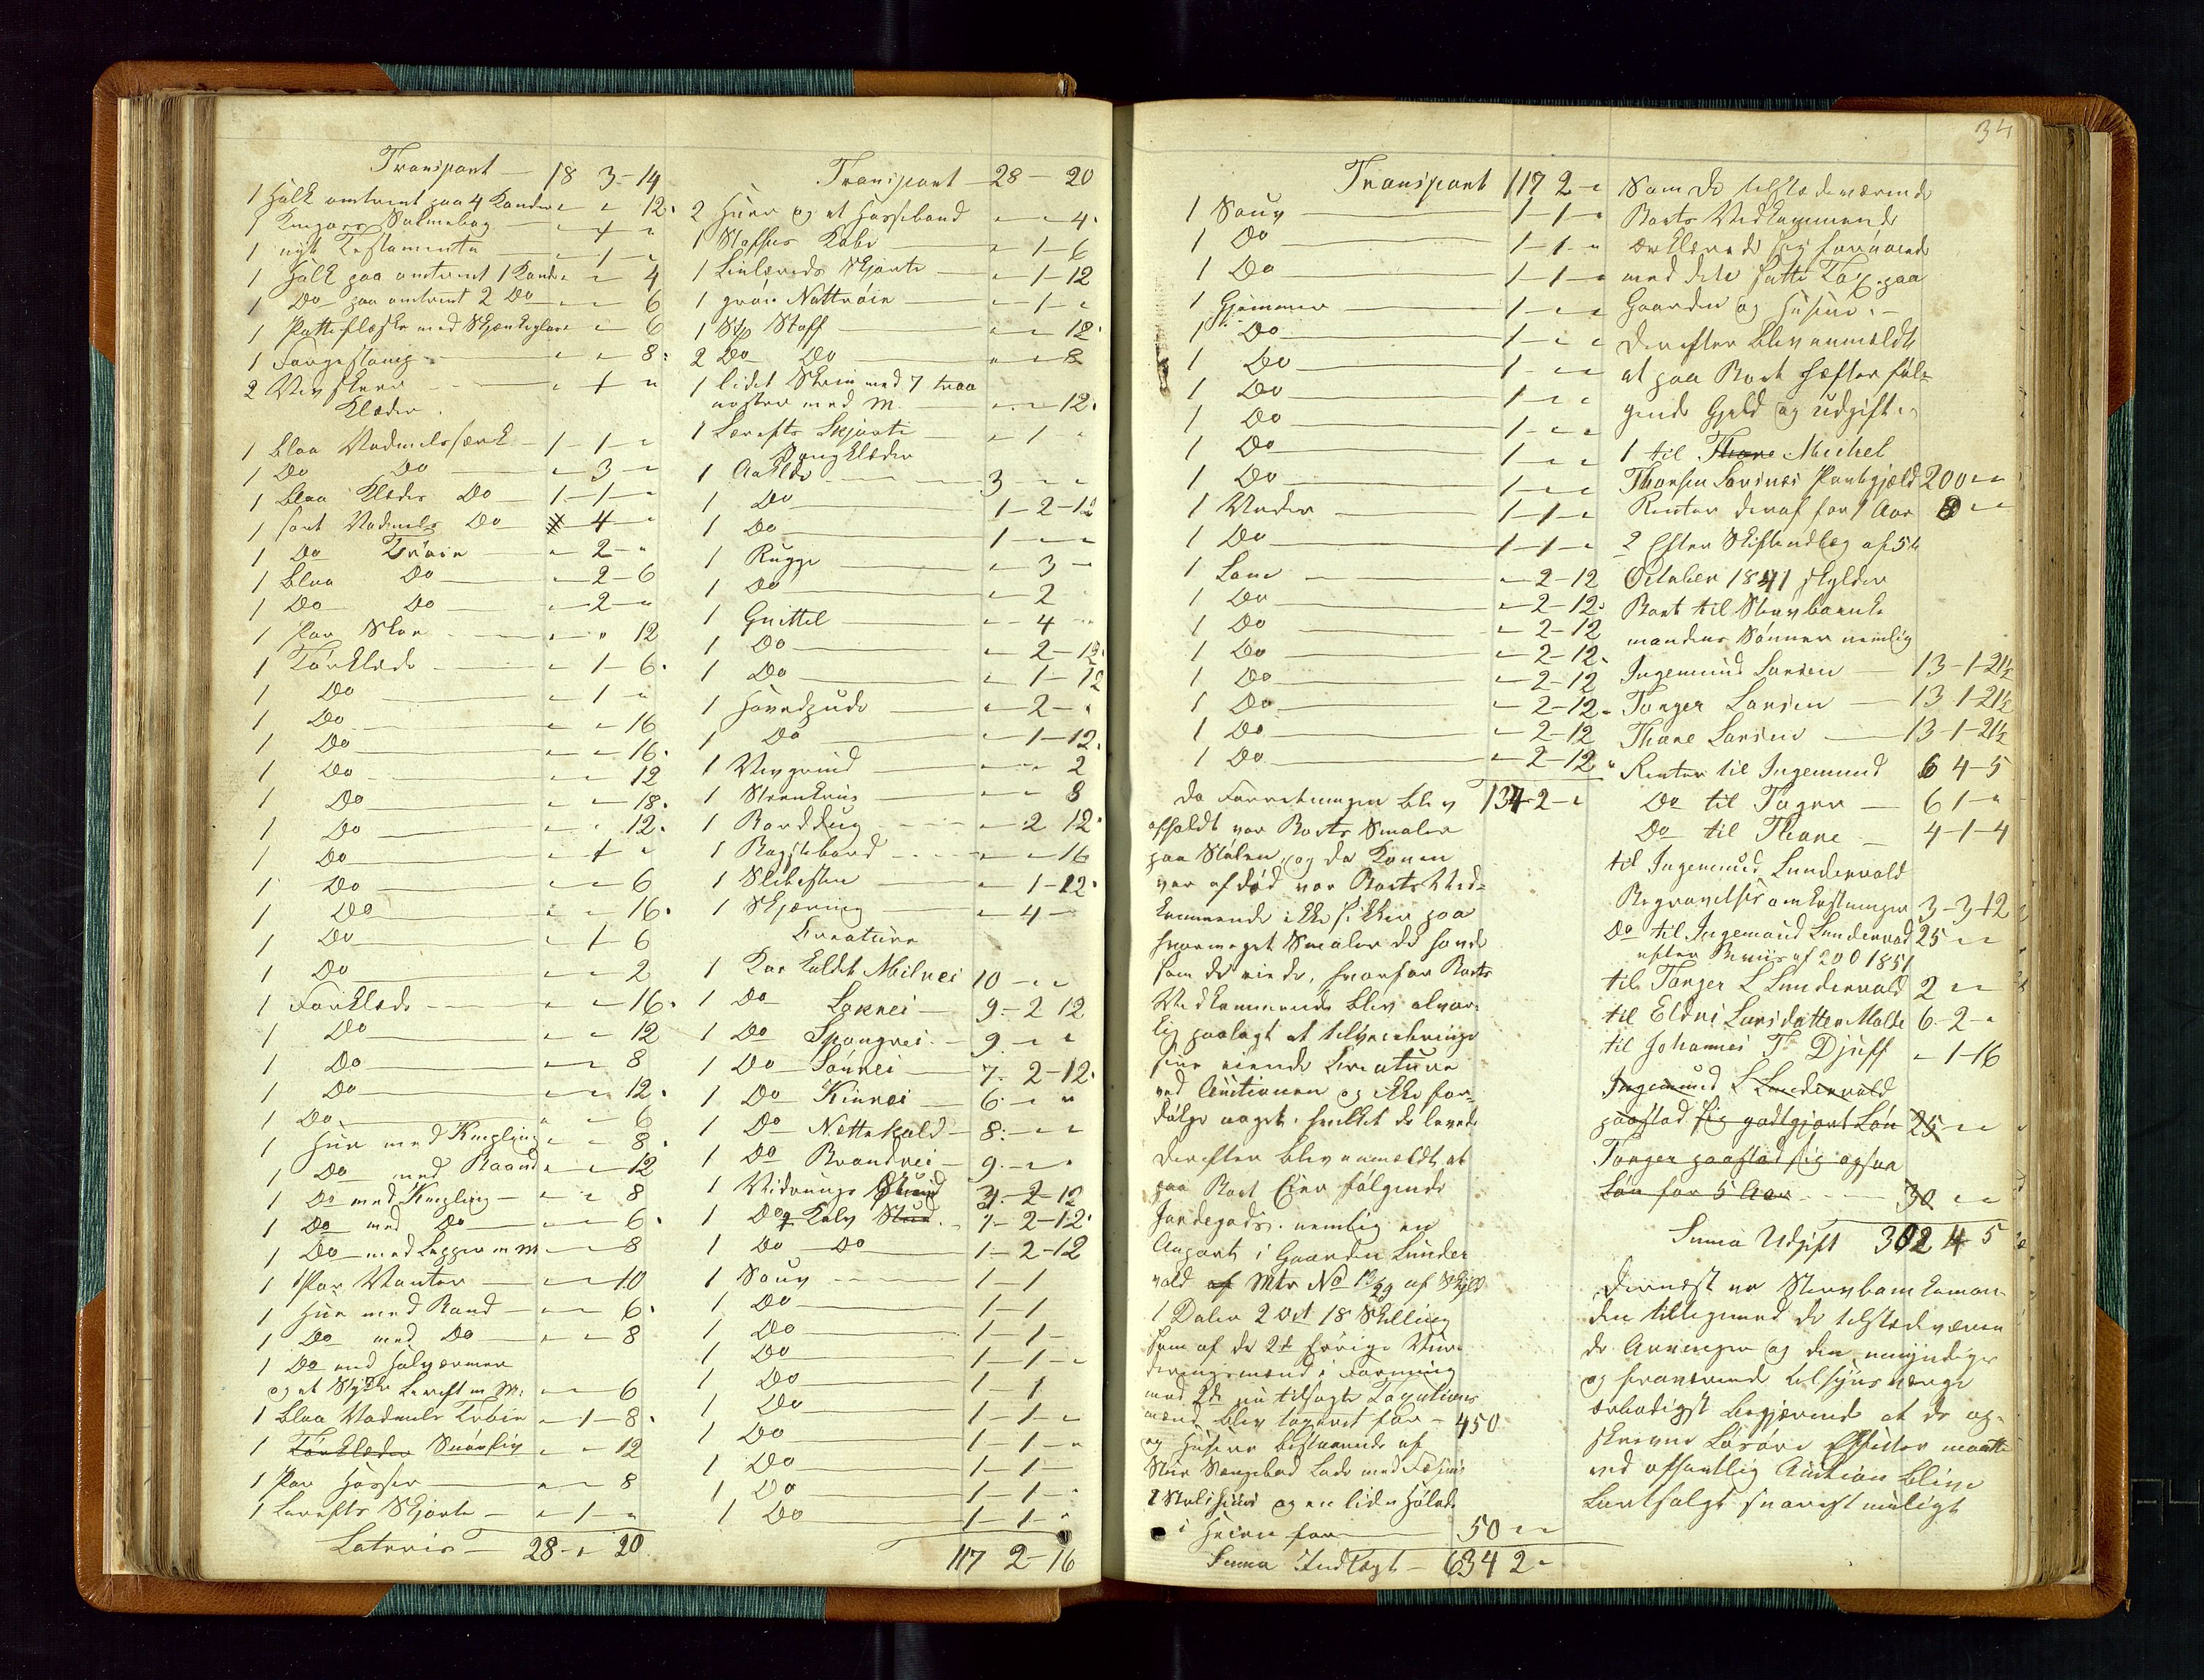 Transport — 18 3-14
1 Holk omtrent paa 4 Kander " " 12.
1 Kingos Salmebog — " 1 "
1 nyt Testamente — " 1 "
1 Holk paa omtrent 1 Kande " " 4
1 Do paa omtrent 2 Do — " " 6
1 Putteflaske med Skjænkeglas " " 6
1 Fargestamp — " " 8.
2 Vevskeer — " 1 "
Klæder.
1 blaa Vadmelsserk — 1-1-"
1 Do Do — " 3-"
1 blaa Klædes Do — 1-1-"
1 sort Vadmels Do — 4-"
1 Do Trøie — " 2-"
1 blaa Do — " 2-6
1 Do Do — " 2-"
1 Par Skoe — " " 12
1 Tørklæde — " 1-6.
1 Do — " 1-"
1 Do — " " 16
1 Do — " " 16.
1 Do — " " 12
1 Do — " " 18.
1 Do — " " 12.
1 Do — " 1 "
1 Do — " " 6
1 Do — " " 16.
1 Do — " 1-6
1 Do — " " 2
1 Forklæde — " " 16.
1 Do — " " 12
1 Do — " " 8
1 Do — " " 12.
1 Do — " " 6
1 Hue med Knipling " " 8.
1 Do med Baand " " 12
1 Do med Knipling — " " 8
1 Do med Do — " " 6.
1 Do med Lapper m M — " " 8
1 Par Vanter — " " 10
1 Hue med Baand — " " 6.
1 Do med Do — " " 8
1 Do med Halværmer
og et Stykke Lereft m M. — " " 6
1 blaa Vadmels Trøie " 1-8.
1 Tørklæder Snørliv " " 12
1 Par Hosser — " " 8
1 Lerefts Skjorte — " 1-"
Lateris — 28-" 20
Transport — 28 — 20
2 Huer og et Hosseband — " " 4.
1 Stoffes Kabe — " 1-6
1 Linlæreds Skjorte — " 1-12
1 grøn Nattrøie — " 1-"
1 Stp Stoff — " " 12.
2 Do Do — " " 8
1 lidet Skrin med 7 traa
nøster med M. — " " 12.
1 Lerefts Skjorte — " 1 "
Sengklæder
1 Aaklæde — 3 - "
1 Do — 1-2-12
1 Do — 1-"-"
1 Rugge — " 3 —
1 Do — " 2
1 Gnittel — " 4 "
1 Do — " 2-12.
1 Do — " 1-12
1 Hovedpude — " 2-"
1 Do — " 1-12.
1 Vevgrind — " " 2
1 Steenkrus — " " 8
1 Borddug — " 2 12.
1 Bagstebord — " " 16
1 Slibesten — " 1-12.
1 Skjæring — " 4-
Kreature
1 Koe kaldet Milrei 10 - " "
1 Do Lokrei — 9-2 12
1 Do Spangrei — 9 - " "
1 Do Sønrei — 7. 2-12.
1 Do Kinrei — 6. " "
1 Do Nettekold — 8. " "
1 Do Brandrei — 9. " "
1 Vidrings Stud 3. 2-12
1 Do Kalv Stud. 1-2-12.
1 Do Do — 1-2-12
1 Souv — 1-1
1 Do — 1-1
1 Do — 1-1-
1 Do — 1-1-"
1 Do — 1-1
1 Do — 1-1-"
1 Do — 1-1-"
1 Do — 1-1-
1 Do — 1-1-"
1 Do — 1-1-"
117 2-16
34
Transport 117 2-"
1 Souv — 1-1-"
1 Do — 1-1-"
1 Do — 1-1-"
1 Gjemmer — 1-" "
1 Do — 1-" "
1 Do — 1-" "
1 Do — 1-" "
1 Do — 1-" "
1 Do — 1-" "
1 Do — 1-" "
1 Veder — 1-1-"
1 Do — 1-1-"
1 Lam — " 2-12
1 Do — " 2-12.
1 Do — " 2-12
1 Do — " 2-12.
1 Do — " 2-12
1 Do — " 2-12.
1 Do — " 2-12
1 Do — " 2-12"
Da Forretningen blev 134-2-"
afholdt var Boets Smaler
paa Stølen, og da Konen
var afdød var Boets Ved-
kommende ikke sikker paa
hvormeget Smaler de havde
som de eiede, hvorfor Boets
Vedkommende blev alvor-
lig paalagt at tilveiebringe
sine eiende Kreature
ved Auctionen og ikke for-
dølge noget. hvilket de lovede
Derefter blev anmeldt at
paa Boet Eier følgende
Jordegods. nemlig en
Anpart i Gaarden Lunder
vold af Mtr No af Skyld
1 Daler 2 Ort 18 Skilling
som af de 2de forrige Vur-
deringsmænd i Forening
med 2de nu tilsagte Taxations
mænd blev taxeret for — 450
og Husene bestaaende af
Stue Sengebod Lade med Fæhuus
2 Stolshuus og en liden Hølade
i Heien for — 50 " "
Suma Indtægt — 634 2-
Som de tilstedeværende
Boets Vedkommende
erklærede sig fornøiede
med dete satte Tax. paa
Gaarden og Husene. —
Derefter blev anmeldt
at paa Boet hæfter føl-
gende Gjeld og udgifter
1 til Thore Michel
Thorsen Sævines Pantgjæld 200 " "
Renter deraf for 1 Aar 8 " "
2 Efter Skifteudlæg af 5te
October 1841 skylder
Boet til Stervboenke
mandens Sønner nemlig
Ingemund Larsen — 13-1-21½
Torger Larsen — 13 1-21½
Thore Larsen — 13-1-21½
Renter til Ingemund 6 4-5
Do til Torger — 6 1-"
Do til Thore — 4-1-4
til Ingemund Lundervold
Begravelsis omkostninger 3-3-12
Do til Ingemund Lundervold 25 " "
efter Beviis af 1851
til Torger L Lundervold 2 " "
til Eldri Larsdatter Molde 6-2-"
til Johannes T. Djuff " 1-16
Ingemund L Lundervold
paastod sig godtgjort Løn 25 " "
Torger paastod sig ogsaa
Løn for 5 Aar — 30 " "
Suma Udgift 302 4 5
Dernæst var Stervboenkeman-
den tilligemed de tilstedeværen
de Arvinger og den umyndiges
og fraværende tilsynsværge
ærbødigst begjærende at de op-
skrevne Løsøre Effecter maatte
ved offentlig Auction blive
bortsolgt snarest muligt